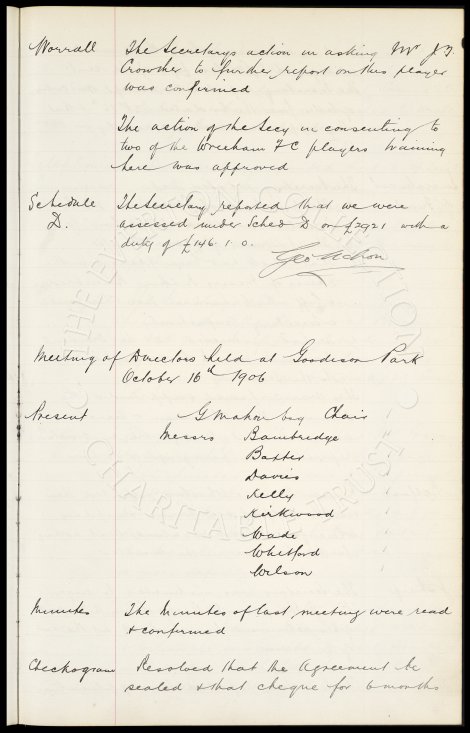 Worrall The Secretarys action in asking Mr J.J.
Crowther to further report on this player
was confirmed
The action of the Secy in consenting to
two of the Wrexham F C players training
here was approved
Schedule The Secretary reported that we were
D. assessed under Sched D on £2921 with a
duty of £146. 1. 0.
Geo Mahon
Meeting of Directors held at Goodison Park
October 16th 1906
Present G Mahon Esq Chair
Messrs Bainbridge
Baxter
Davies
Kelly
Kirkwood
Wade
Whitford
Wilson
Minutes The Minutes of last meeting were read
& confirmed
Checkogram Resolved that the Agreement be
sealed & that cheque for 6 months
THE EVERTON COLLECTION
CHARITABLE TRUST